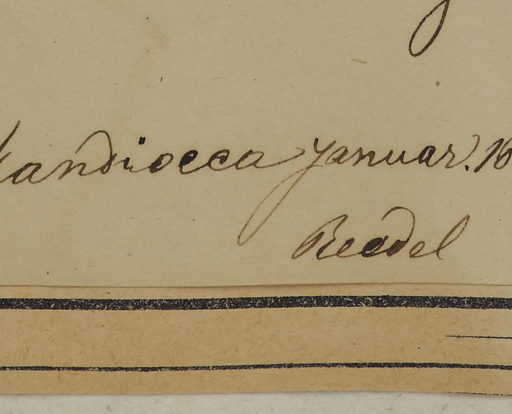 andiocca Januar. 18
Riedel